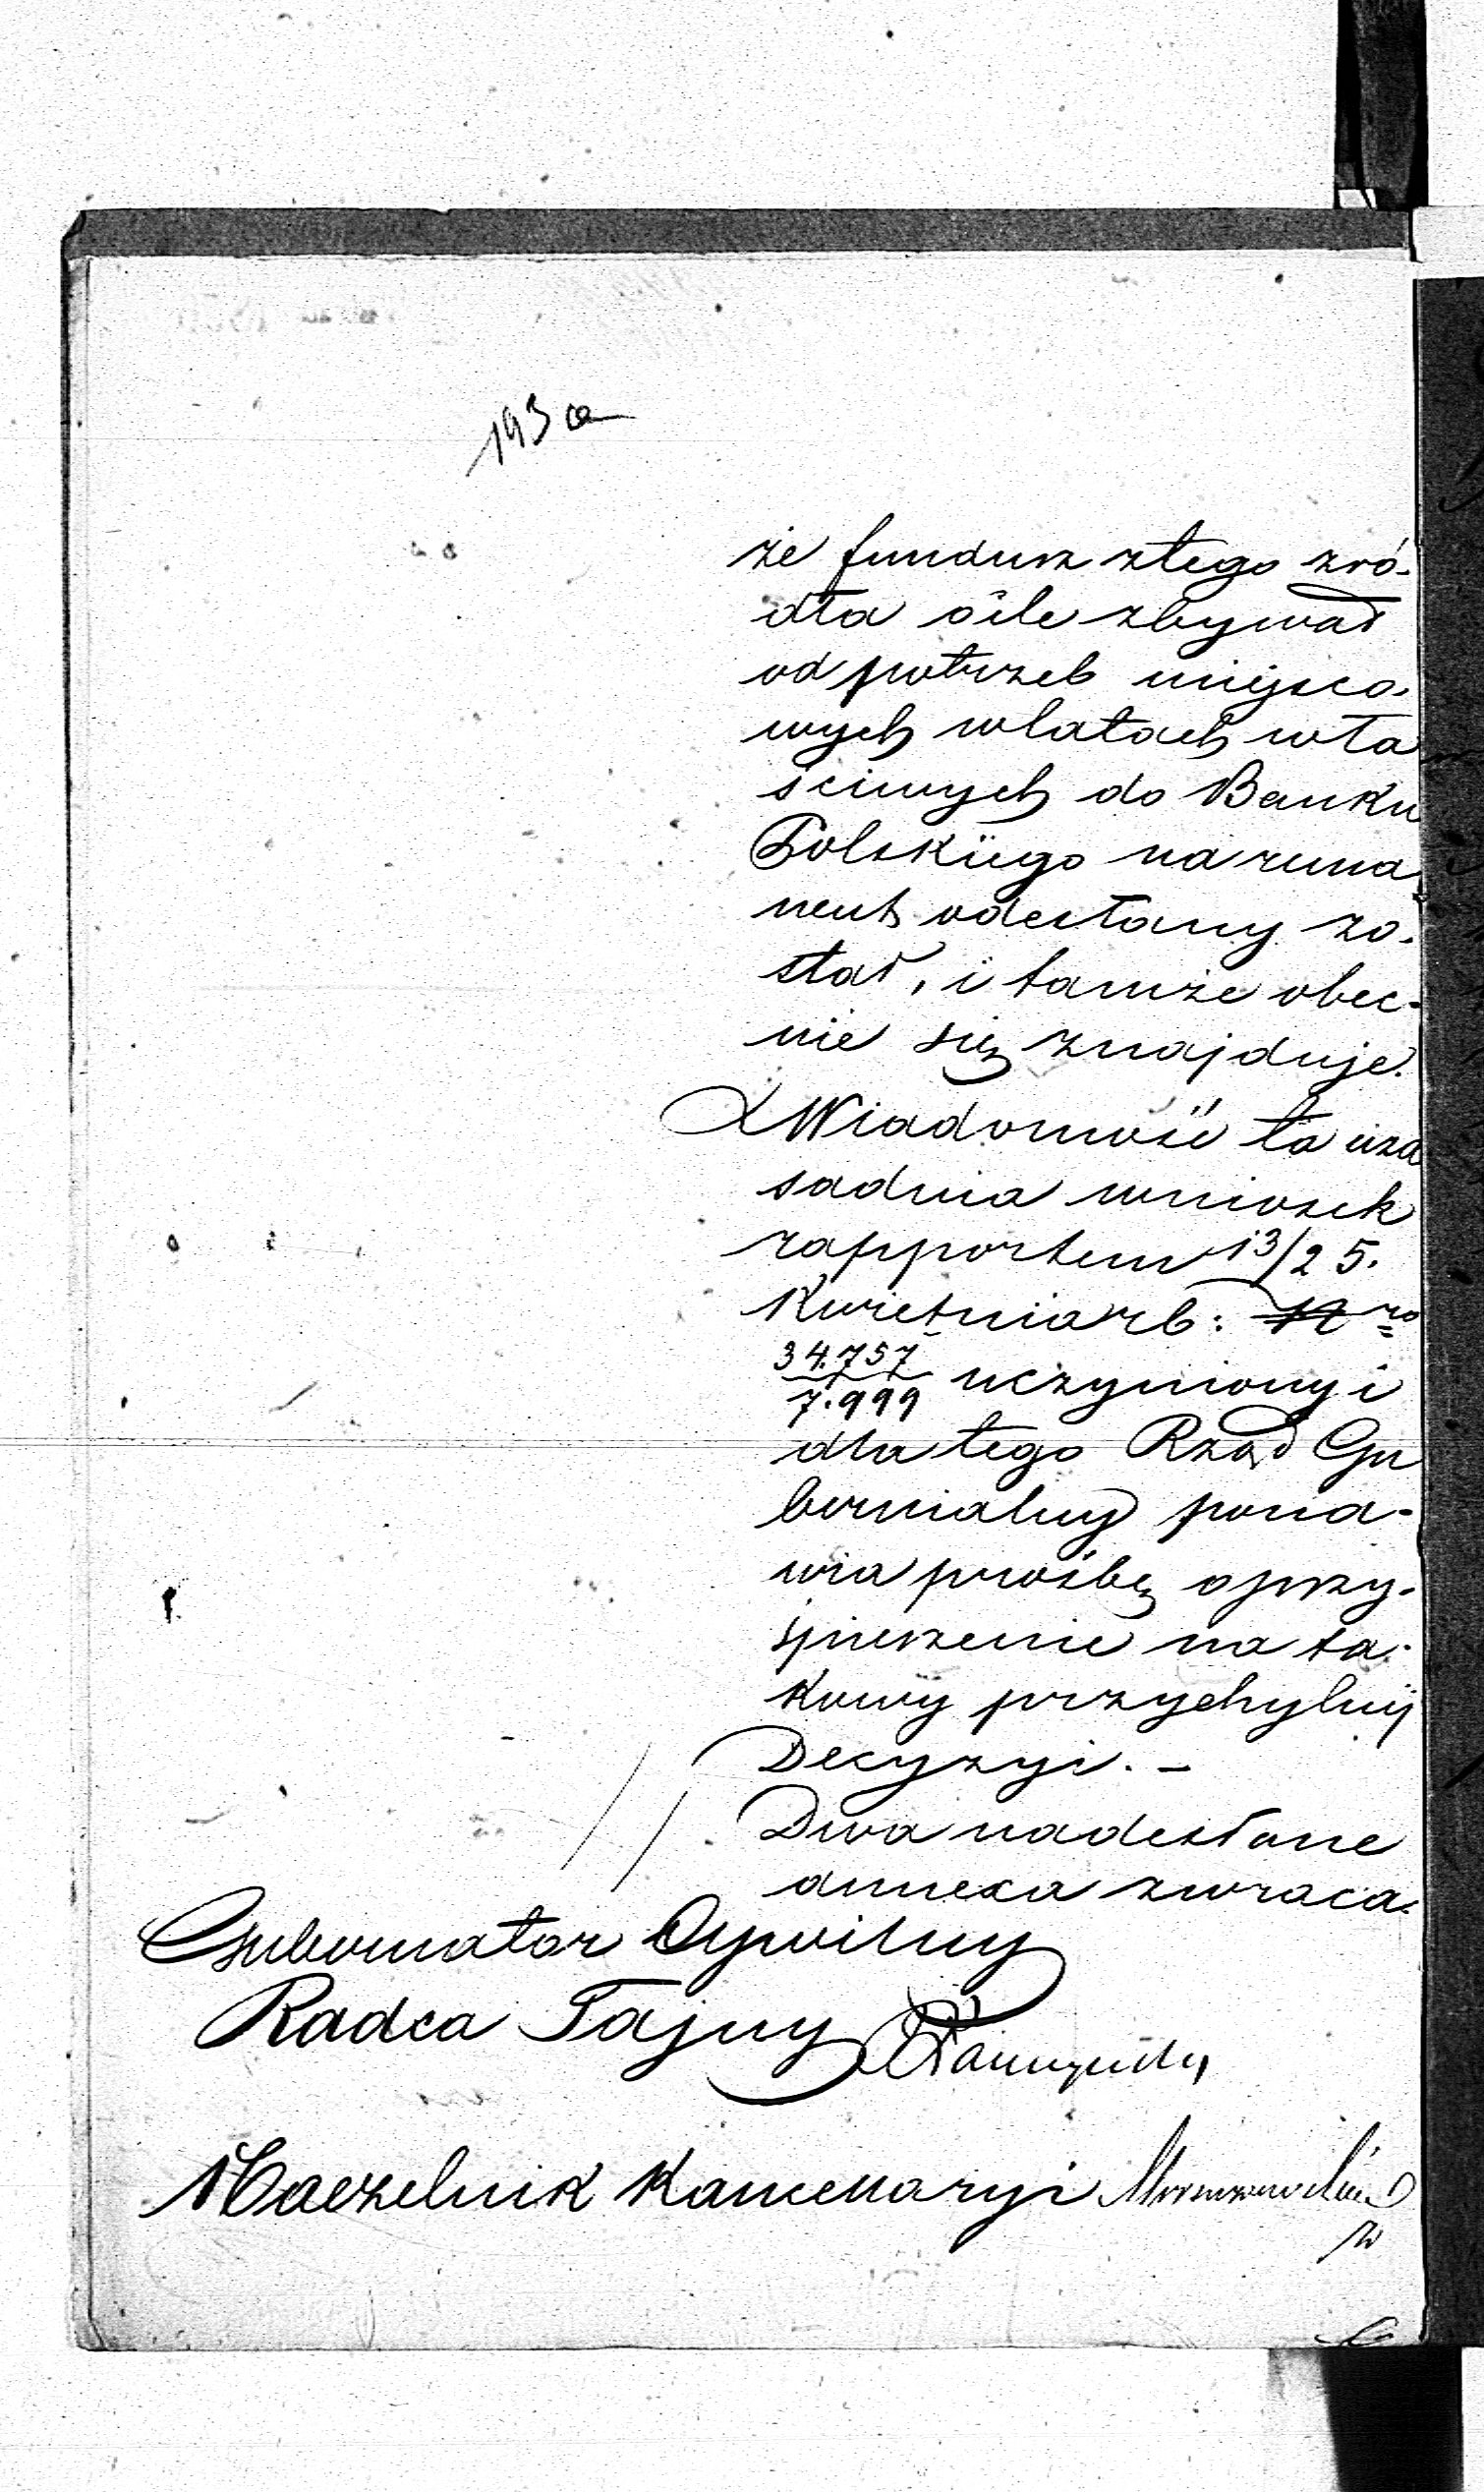 193 a
że fundusz ztego zró-
dła oile zbywał
od potrzeb miejsco-
wych wlatach wła
ściwych do Banku
Polskiego na rema
nent odesłany zo-
stał, i tamże obec-
nie się znajduje.
Wiadomość ta uza
sadnia wniosek
rapportem 13/25.
Kwietnia rb: Nro
34.757
7.999 uczyniony i
dla tego Rząd Gu
bernialny pona-
wia prośbę o przy-
spieszenie na ta-
kowy przychylnej
Decyzyi. -
Dwa nadesłane
annexa zwraca.
Gubernator Cywilny
Radca Tajny
Naczelnik Kancellaryi